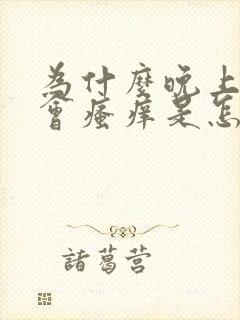 为什麼晚上
會瘙痒是怎
諸葛营